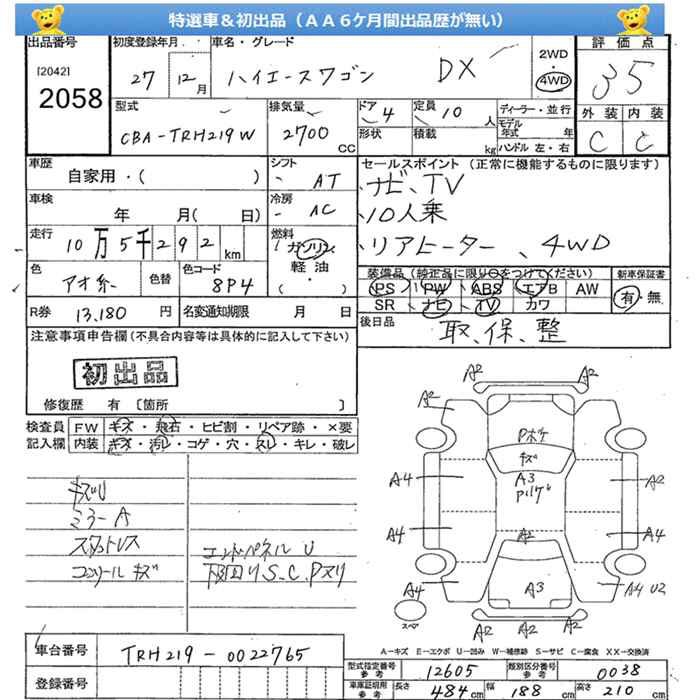 特選車＆初出品（ＡＡ６ケ月間出品歴が無い）
出品番号 初度登録年月 車名・グレード 2WD・4WD 評価点
[2042]
2058
27年 12月 ハイエースワゴン DX 35
外装 内装
C C
型式 排気量 ドア 4 定員 10人 ディーラー・並行
CBA-TRH219W 2700cc 形状 積載 kg モデル年式 年
ハンドル 左・右
車歴 シフト セールスポイント（正常に機能するものに限ります）
自家用・（ ） AT ナビ、TV
車検 冷房 10人乗
年 月（ 日） AC リアヒーター、4WD
走行 燃料
10万5千292km ガソリン
軽油・（ ）
色 色替 色コード 装備品（純正品に限り○をつけてください） 新車保証書
アオ系 8P4 PS PW ABS エアB AW 有・無
SR ナビ TV カワ
R券 13,180円 名変通知期限 月 日 後日品
取、保、整
注意事項申告欄（不具合内容等は具体的に記入して下さい）
初出品
修復歴 有 〔箇所 〕
検査員記入欄 FW キズ・飛石・ヒビ割・リペア跡・×要
内装 キズ・汚レ・コゲ・穴・スレ・キレ・破レ
キズU
ミラーA
スタットレス
コンソールキズ
エンドパネルU
下回りS.C.Pヌリ
A2 A2
A2 A2
Pボケ
キズ
A3
A4 A2
A4 A2 A4
A3
A4 A4 U2
スペア A2 A2 A2
A－キズ E－エクボ U－凹み W－補修跡 S－サビ C－腐食 XX－交換済
車台番号 TRH219-0022765
登録番号
型式指定番号 参考 12605 類別区分番号 参考 0038
車庫証明用 参考 長さ 484cm 幅 188cm 高さ 210cm